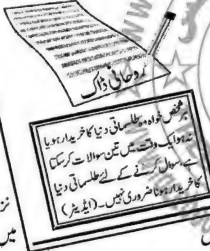 روحانی ڈاک
ہر شخص خواہ وہ طلسماتی دنیا کا خریدار ہو یا
نہ ہو ایک وقت میں تین سوالات کرسکتا
ہے، سوال کرنے کے لئے طلسماتی دنیا
کا خریدار ہونا ضروری نہیں۔ (ایڈیٹر)
میں